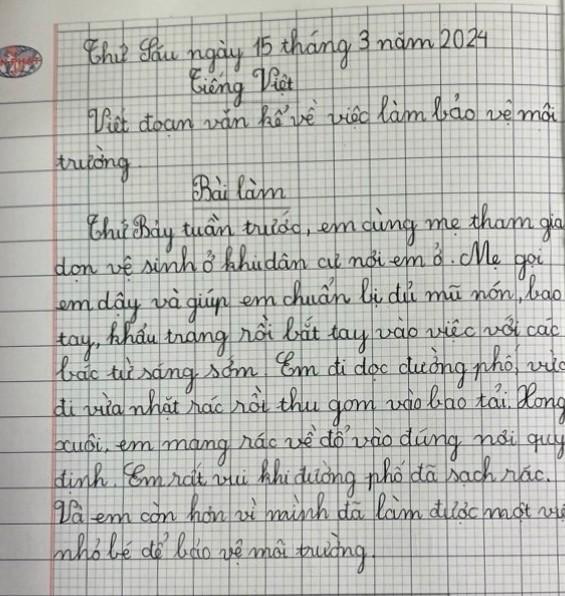 Thứ Sáu ngày 15 tháng 3 năm 2024
Tiếng Việt
Viết đoạn văn kể về việc làm bảo vệ môi
trường.
Bài làm
Thứ Bảy tuần trước, em cùng mẹ tham gia
dọn vệ sinh ở khu dân cư nơi em ở. Mẹ gọi
em dậy và giúp em chuẩn bị đủ mũ nón, bao
tay, khẩu trang rồi bắt tay vào việc với các
bác từ sáng sớm. Em đi dọc đường phố, vừa
đi vừa nhặt rác rồi thu gom vào bao tải. Xong
xuôi, em mang rác về đổ vào đúng nơi quy
định. Em rất vui khi đường phố đã sạch rác.
Và em còn hơn vì mình đã làm được một
nhỏ bé để bảo vệ môi trường.